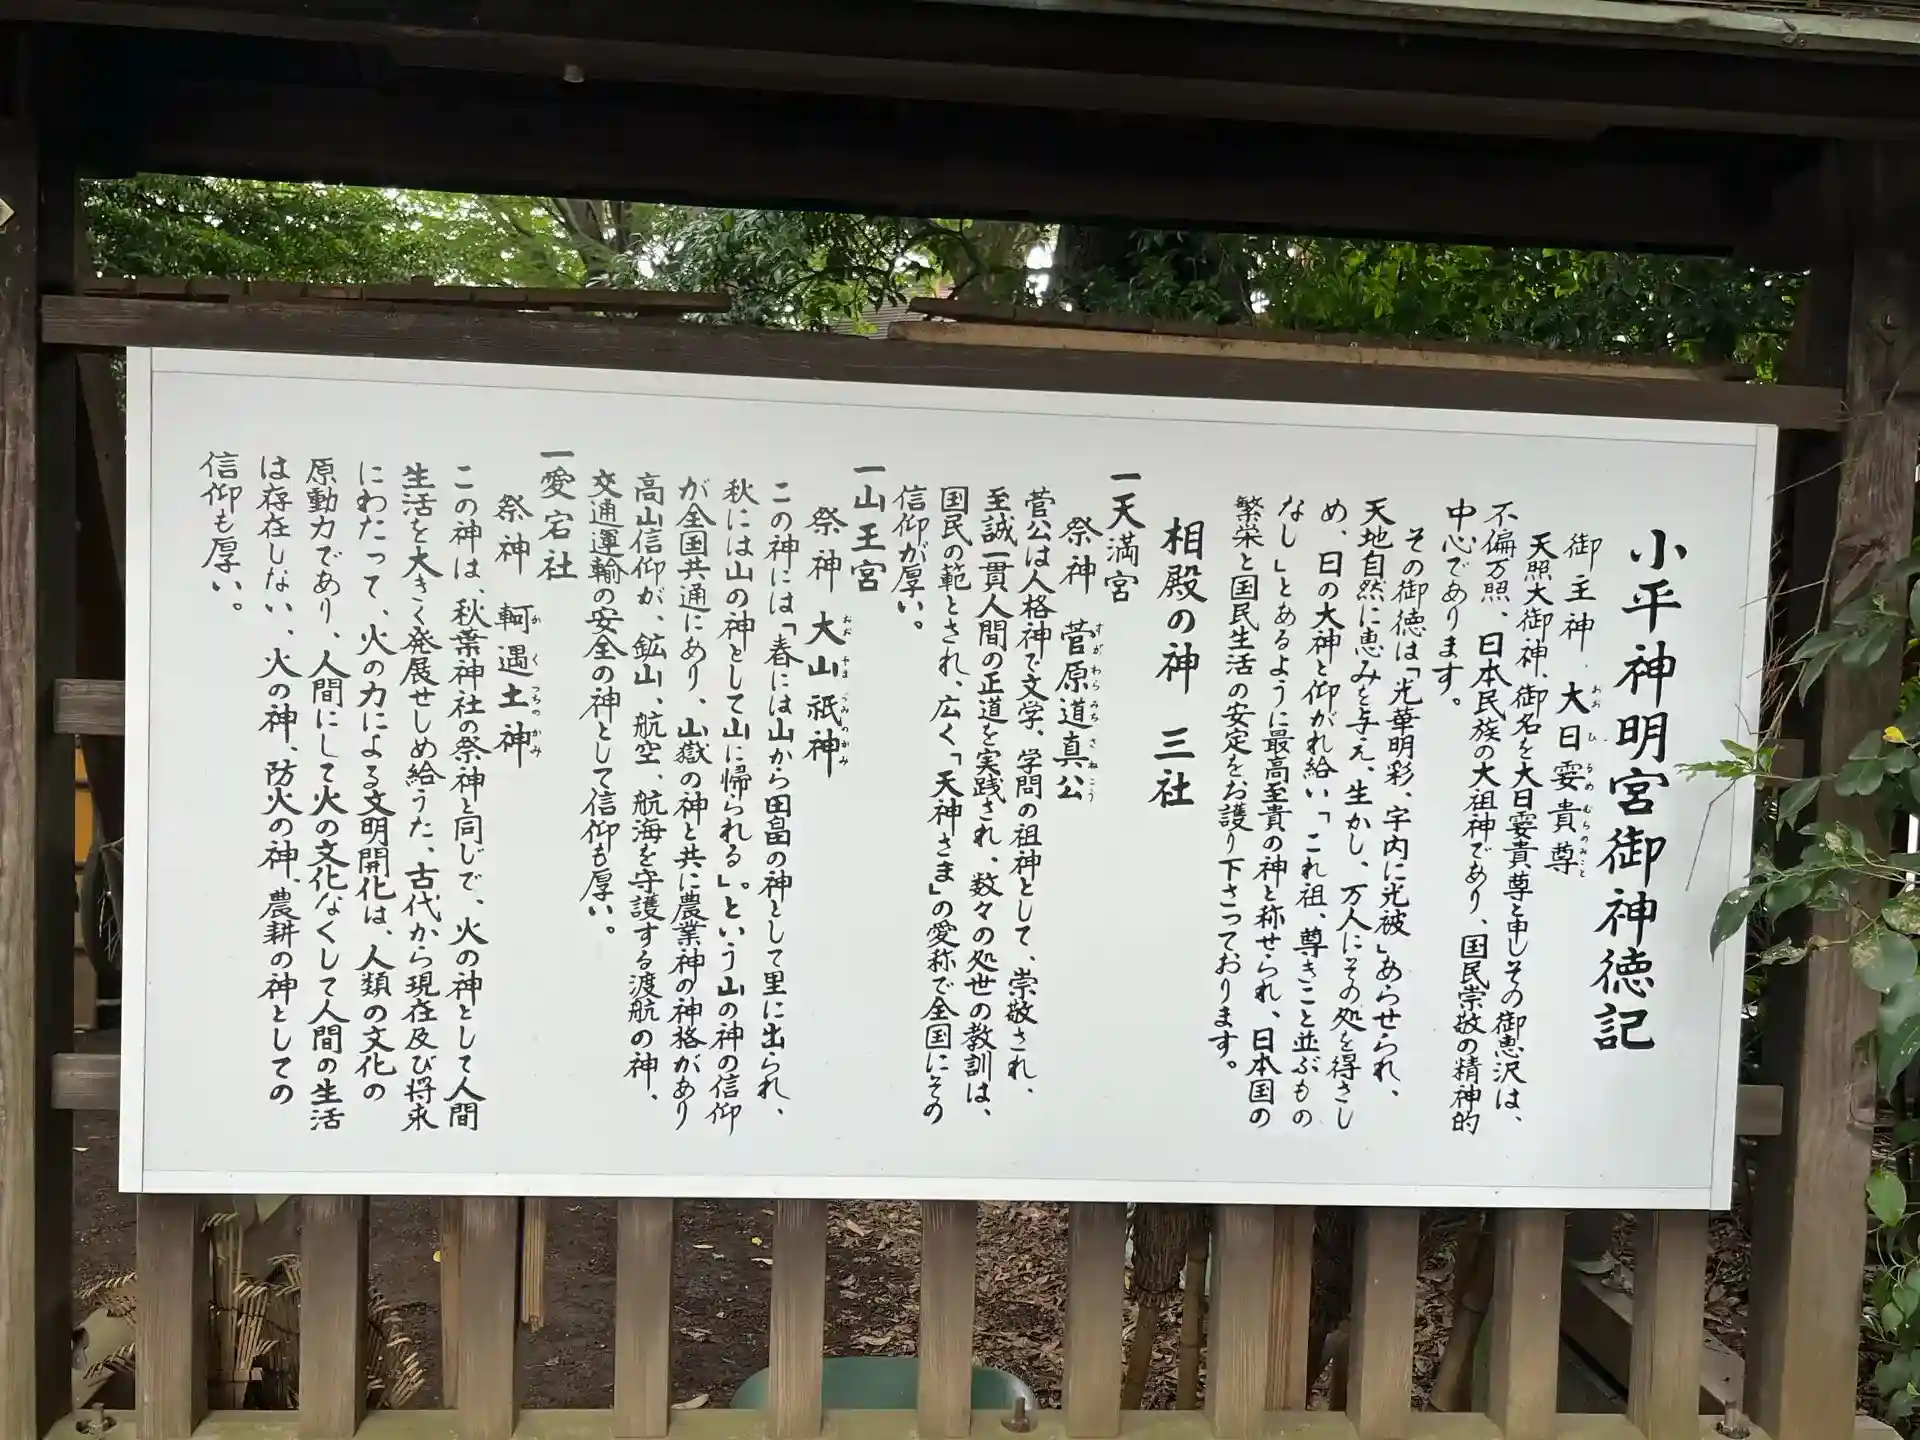 小平神明宮御神徳記
御主神 大日孁貴尊
おお ひ るめ むちのみこと
天照大御神、御名を大日孁貴尊と申しその御恵沢は、
不偏万照、日本民族の大祖神であり、国民崇敬の精神的
中心であります。
その御徳は「光華明彩、宇内に光被」あらせられ、
天地自然に恵みを与え、生かし、万人にその処を得さし
め、日の大神と仰がれ給い「これ祖、尊きこと並ぶもの
なし」とあるように最高至貴の神と称せられ、日本国の
繁栄と国民生活の安定をお護り下さっております。
相殿の神 三社
一天満宮
祭神 菅原道真公
すがわらみちざねこう
菅公は人格神で文学、学問の祖神として、崇敬され、
至誠一貫人間の正道を実践され、数々の処世の教訓は、
国民の範とされ、広く「天神さま」の愛称で全国にその
信仰が厚い。
一山王宮
祭神 大山祇神
おおやまづみのかみ
この神には「春には山から田畠の神として里に出られ、
秋には山の神として山に帰られる」。という山の神の信仰
が全国共通にあり、山嶽の神と共に農業神の神格があり
高山信仰が、鉱山、航空、航海を守護する渡航の神、
交通運輸の安全の神として信仰も厚い。
一愛宕社
祭神 軻遇土神
かくつちのかみ
この神は、秋葉神社の祭神と同じで、火の神として人間
生活を大きく発展せしめ給うた、古代から現在及び将来
にわたって、火の力による文明開化は、人類の文化の
原動力であり、人間にして火の文化なくして人間の生活
は存在しない、火の神、防火の神、農耕の神としての
信仰も厚い。